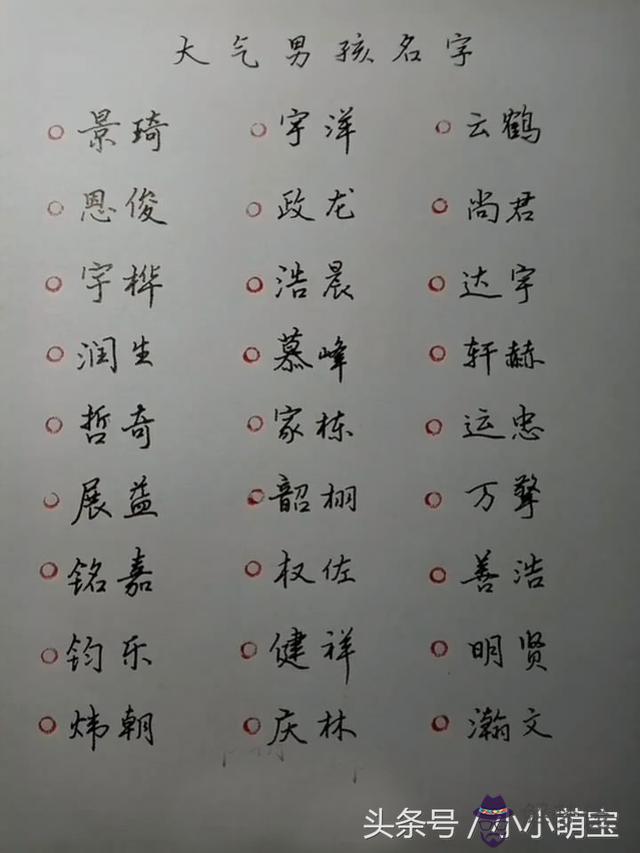 大气男孩名字
景琦 宇洋 云鹤
恩俊 政龙 尚君
宇桦 浩晨 达宇
润生 慕峰 轩赫
哲奇 家栋 运忠
展益 韶栩 万擎
铭嘉 权佐 善浩
钧乐 健祥 明贤
炜朝 庆林 瀚文
头条号／小小萌宝